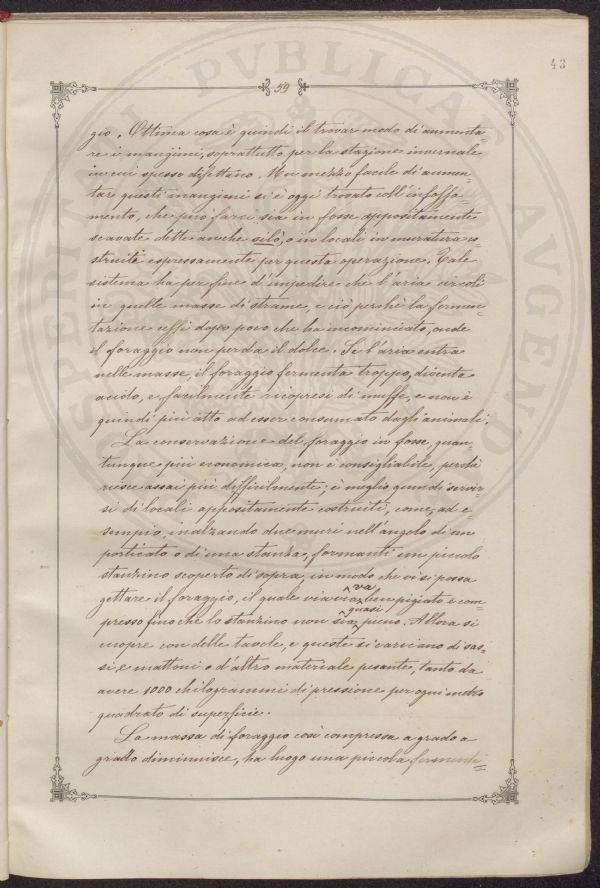 43
59
gio. Ottima cosa è quindi il trovar modo di aumenta-
re i mangimi, soprattutto per la stagione invernale
in cui spesso difettano. Un mezzo facile di aumen-
tar questi mangimi si è oggi trovato coll'infossa-
mento, che può farsi sia in fosse appositamente
scavate dette anche silò, o in locali in muratura co-
struiti espressamente per questa operazione. Tale
sistema ha per fine d'impedire che l'aria circoli
in quelle masse di strame, e ciò perchè la fermen-
tazione cessi dopo poco che ha incominciato, onde
il foraggio non perda il dolce. Se l'aria entra
nelle masse, il foraggio fermenta troppo, diventa
acido, e facilmente ricopresi di muffe, e non è
quindi più atto ad esser consumato dagli animali.
La conservazione del foraggio in fosse, quan-
tunque più economica, non è consigliabile, perchè
riesce assai più difficilmente; è meglio quindi servir-
si di locali appositamente costruiti, come, ad e-
sempio, inalzando due muri nell'angolo di un
porticato o di una stanza, formanti un piccolo
stanzino scoperto di sopra, in modo che vi si possa
gettare il foraggio, il quale via via va ben pigiato e com-
presso fino che lo stanzino non sia quasi pieno. Allora si
cuopre con delle tavole, e queste si caricano di sas-
si, e mattoni o d'altro materiale pesante, tanto da
avere 1000 chilogrammi di pressione per ogni metro
quadrato di superficie.
La massa di foraggio così compressa a grado a
grado diminuisce, ha luogo una piccola fermenta-
PUBLICAE
AUGENDO